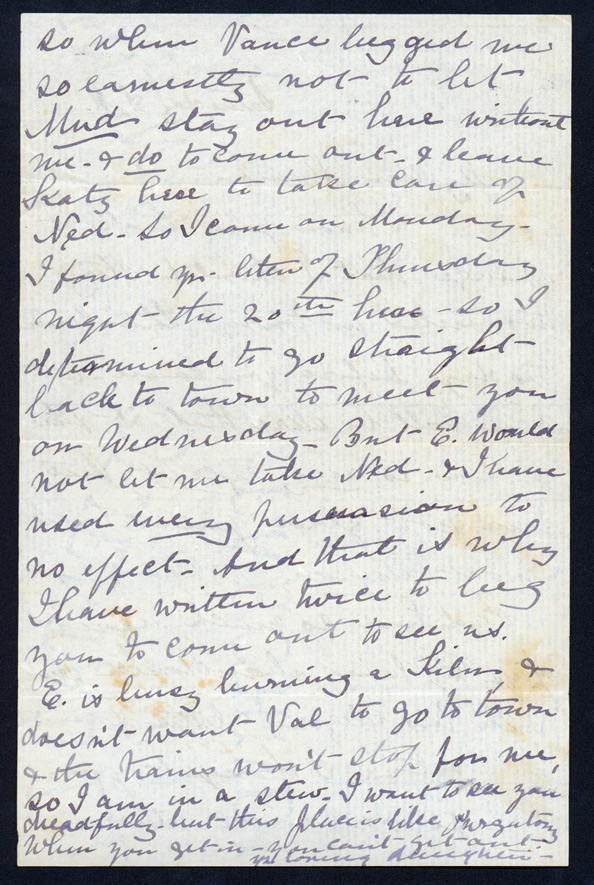 so when Vance begged me
so earnestly not to let
Mud stay out here without
me - & do to come out - & leave
Katy here to take care of
Ned - So I came on Monday -
I found yr. letter of Thursday
night the 20th here - so I
determined to go straight
back to town to meet you
on Wednesday - But E. would
not let me take Ned - & I have
used every persuasion to
no effect - And that is why
I have written twice to beg
you to come out to see us.
E. is busy burning a Kiln, &
doesn't want Val to go to town
& the trains won't stop for me,
so I am in a stew - I want to see you
dreadfully - but this place is like Purgatory
When you get in - you can't get out -
yr loving daughter -